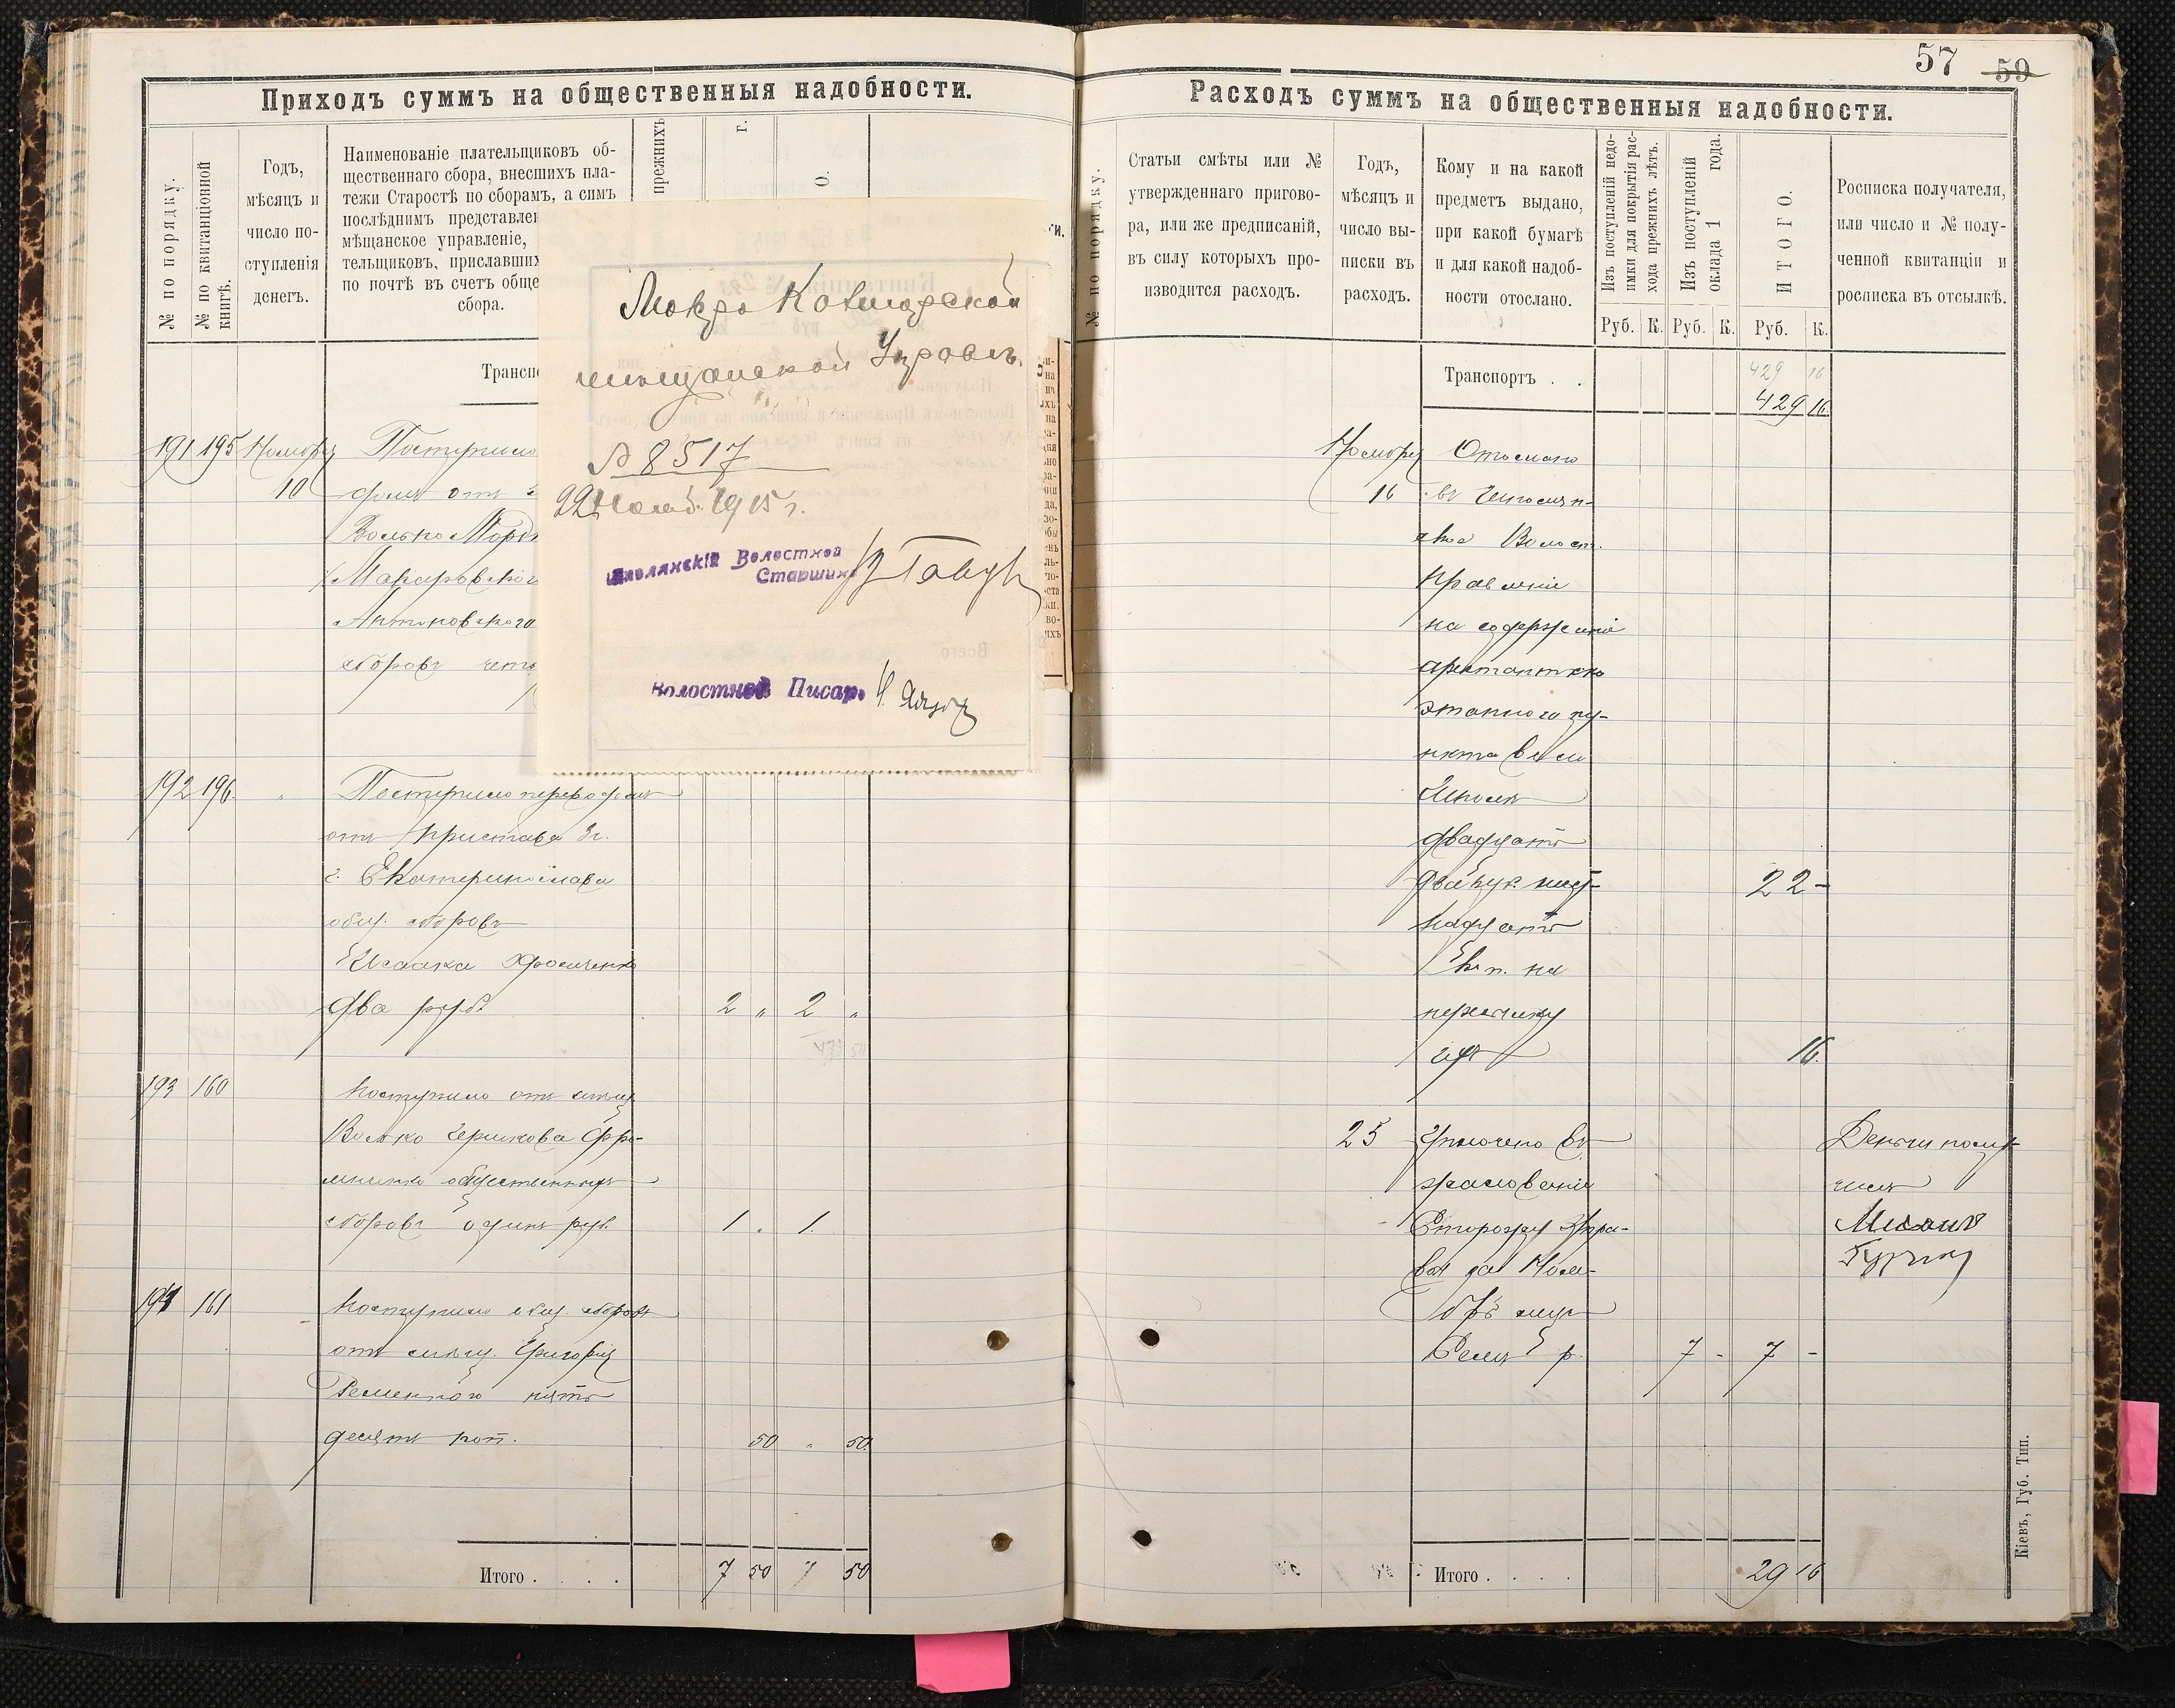 57 59
Приходъ суммъ на общественныя надобности.
№ по порядку.
№ по квитанціонной книгѣ.
Годъ,
мѣсяцъ и
число по-
ступленія
денегъ.
Наименованіе плательщиковъ об-
щественнаго сбора, внесшихъ пла-
тежи Старостѣ по сборамъ, а симъ
послѣднимъ представлен
мѣщанское управленіе,
тельщиковъ, приславших
по почтѣ въ счетъ обще
сбора.
прежнихъ
г.
О.
Транспо
191 195 Ноября Поступило
10
Волько Морд
Макаровског
Антоновского
сборовъ четы
192 196 " Поступило переводомъ
отъ Пристава 3 ч.
г. Екатеринослава
общ. сборовъ
Исаака Фроимченко
два руб. 2 " 2 "
193 160 Поступило отъ мѣщ.
Волько Герцкова Фро-
имченко общественныхъ
сборовъ одинъ руб. 1 . 1.
194 161 Поступило общ. сборовъ
отъ мѣщ. Григорія
Ременного пять
десятъ коп. 50 " 50
Итого . . . . 7 50 7 50
Мокро Калигорской
мѣщанской Управѣ.
№ 8517
22 Нояб. 1915 г.
Шполянскій Волостной
Старшина
Волостной Писарь
Расходъ суммъ на общественныя надобности.
№ по порядку.
Статьи смѣты или №
утвержденнаго пригово-
ра, или же предписаній,
въ силу которыхъ про-
изводится расходъ.
Годъ,
мѣсяцъ и
число вы-
писки въ
расходъ.
Кому и на какой
предметъ выдано,
при какой бумагѣ
и для какой надоб-
ности отослано.
Изъ поступленій недо-
имки для покрытія рас-
хода прежнихъ лѣтъ.
Изъ поступленій
оклада 1 года.
ИТОГО.
Росписка получателя,
или число и № полу-
ченной квитанціи и
росписка въ отсылкѣ.
Руб. К. Руб. К. Руб. К.
429 16
Транспортъ . . 429 16
Ноября Отослано
16 въ Шполян-
ское Волост.
Правленіе
на содержаніе
арестантско
этапного пу-
нкта въ м.
Шполѣ
двадцать
два рук. шест- 22 -
надцать
к. на
пересылку
ихъ 16.
25 Уплочено въ Деньги полу-
жалованіе чилъ
Сторожу Упра-
вы за Нояб-
брь мцъ
Семь р. 7 - 7 -
Итого . . . . 29 16
Кіевъ, Губ. Тип.